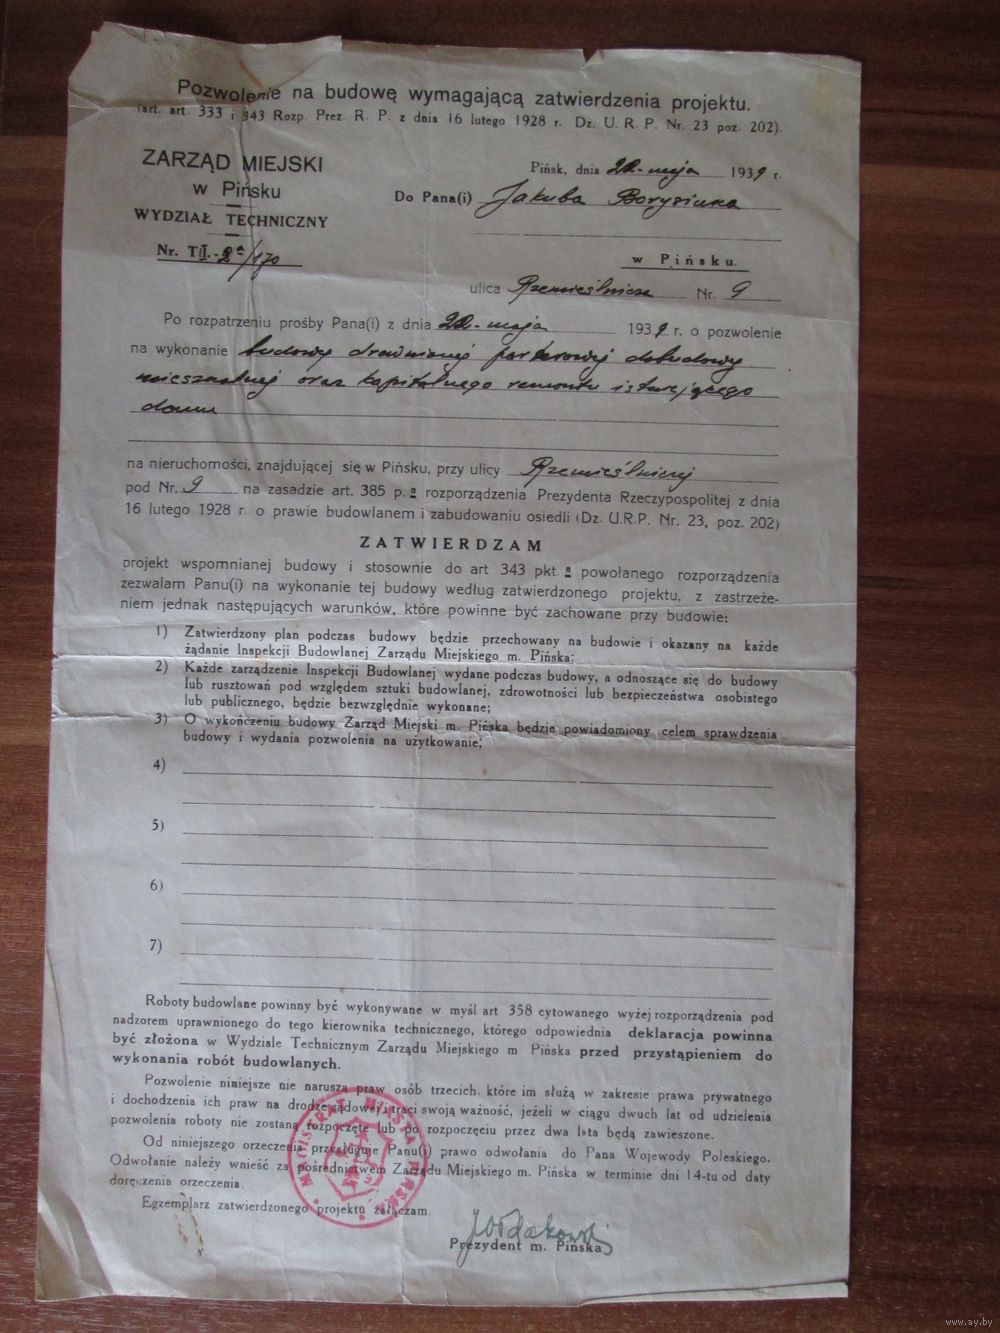 Pozwolenie na budowę wymagającą zatwierdzenia projektu.
(art. art. 333 i 343 Rozp. Prez. R. P. z dnia 16 lutego 1928 r. Dz. U. R. P. Nr. 23 poz. 202).
ZARZĄD MIEJSKI
w Pińsku
WYDZIAŁ TECHNICZNY
Nr. TII.-8a/170
Pińsk, dnia maja 1939 r.
Do Pana(i) Jakuba Borysiuka
w Pińsku.
ulica Rzemieślnicza Nr. 9
Po rozpatrzeniu prośby Pana(i) z dnia maja 1939 r. o pozwolenie
na wykonanie budowy drewnianej parterowej dobudowy
mieszkalnej oraz kapitalnego remontu istniejącego
domu
na nieruchomości, znajdującej się w Pińsku, przy ulicy Rzemieślniczej
pod Nr. 9 na zasadzie art. 385 p. a rozporządzenia Prezydenta Rzeczypospolitej z dnia
16 lutego 1928 r. o prawie budowlanem i zabudowaniu osiedli (Dz. U.R.P. Nr. 23, poz. 202)
ZATWIERDZAM
projekt wspomnianej budowy i stosownie do art 343 pkt. a powołanego rozporządzenia
zezwalam Panu(i) na wykonanie tej budowy według zatwierdzonego projektu, z zastrzeże-
niem jednak następujących warunków, które powinne być zachowane przy budowie:
1) Zatwierdzony plan podczas budowy będzie przechowany na budowie i okazany na każde
żądanie Inspekcji Budowlanej Zarządu Miejskiego m. Pińska;
2) Każde zarządzenie Inspekcji Budowlanej wydane podczas budowy, a odnoszące się do budowy
lub rusztowań pod względem sztuki budowlanej, zdrowotności lub bezpieczeństwa osobistego
lub publicznego, będzie bezwzględnie wykonane;
3) O wykończeniu budowy Zarząd Miejski m. Pińska będzie powiadomiony celem sprawdzenia
budowy i wydania pozwolenia na użytkowanie;
4)
5)
6)
7)
Roboty budowlane powinny być wykonywane w myśl art 358 cytowanego wyżej rozporządzenia pod
nadzorem uprawnionego do tego kierownika technicznego, którego odpowiednia deklaracja powinna
być złożona w Wydziale Technicznym Zarządu Miejskiego m. Pińska przed przystąpieniem do
wykonania robót budowlanych.
Pozwolenie niniejsze nie narusza praw osób trzecich, które im służą w zakresie prawa prywatnego
i dochodzenia ich praw na drodze sądowej i traci swoją ważność, jeżeli w ciągu dwuch lat od udzielenia
pozwolenia roboty nie zostaną rozpoczęte lub po rozpoczęciu przez dwa lata będą zawieszone.
Od niniejszego orzeczenia przysługuje Panu(i) prawo odwołania do Pana Wojewody Poleskiego.
Odwołanie należy wnieść za pośrednictwem Zarządu Miejskiego m. Pińska w terminie dni 14-tu od daty
doręczenia orzeczenia.
Egzemplarz zatwierdzonego projektu załączam.
MAGISTRAT MIASTA PIŃSKA
Prezydent m. Pińska
www.ay.by